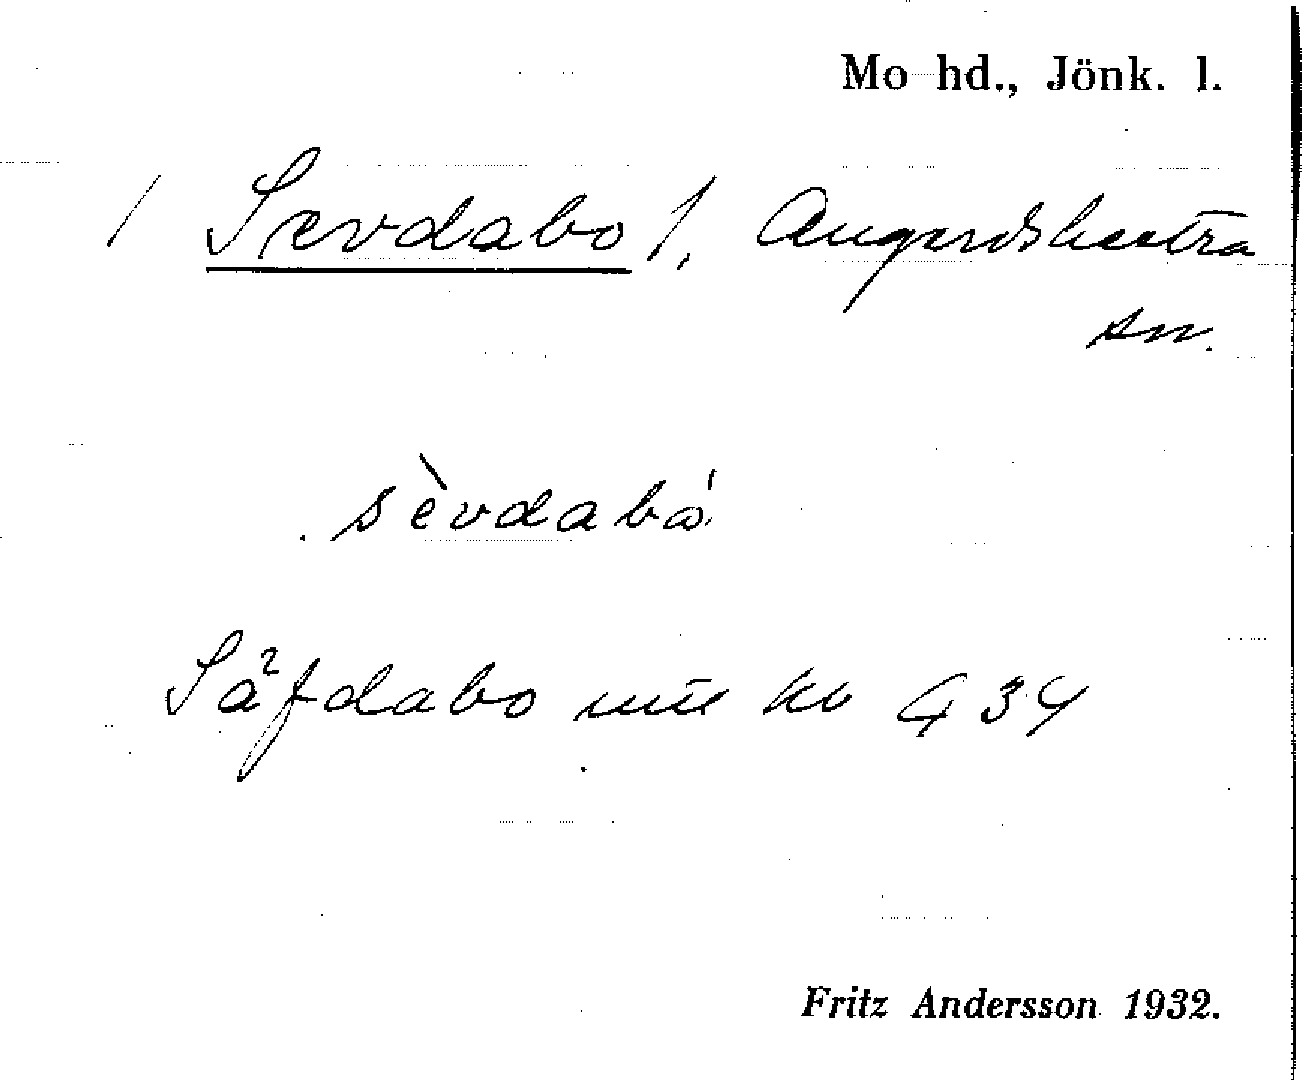 Mo hd., Jönk. l.
/ Sævdabo /, Angerdshestra
sn.
sèvdabó
Säfdabo
434
Fritz Andersson 1932.